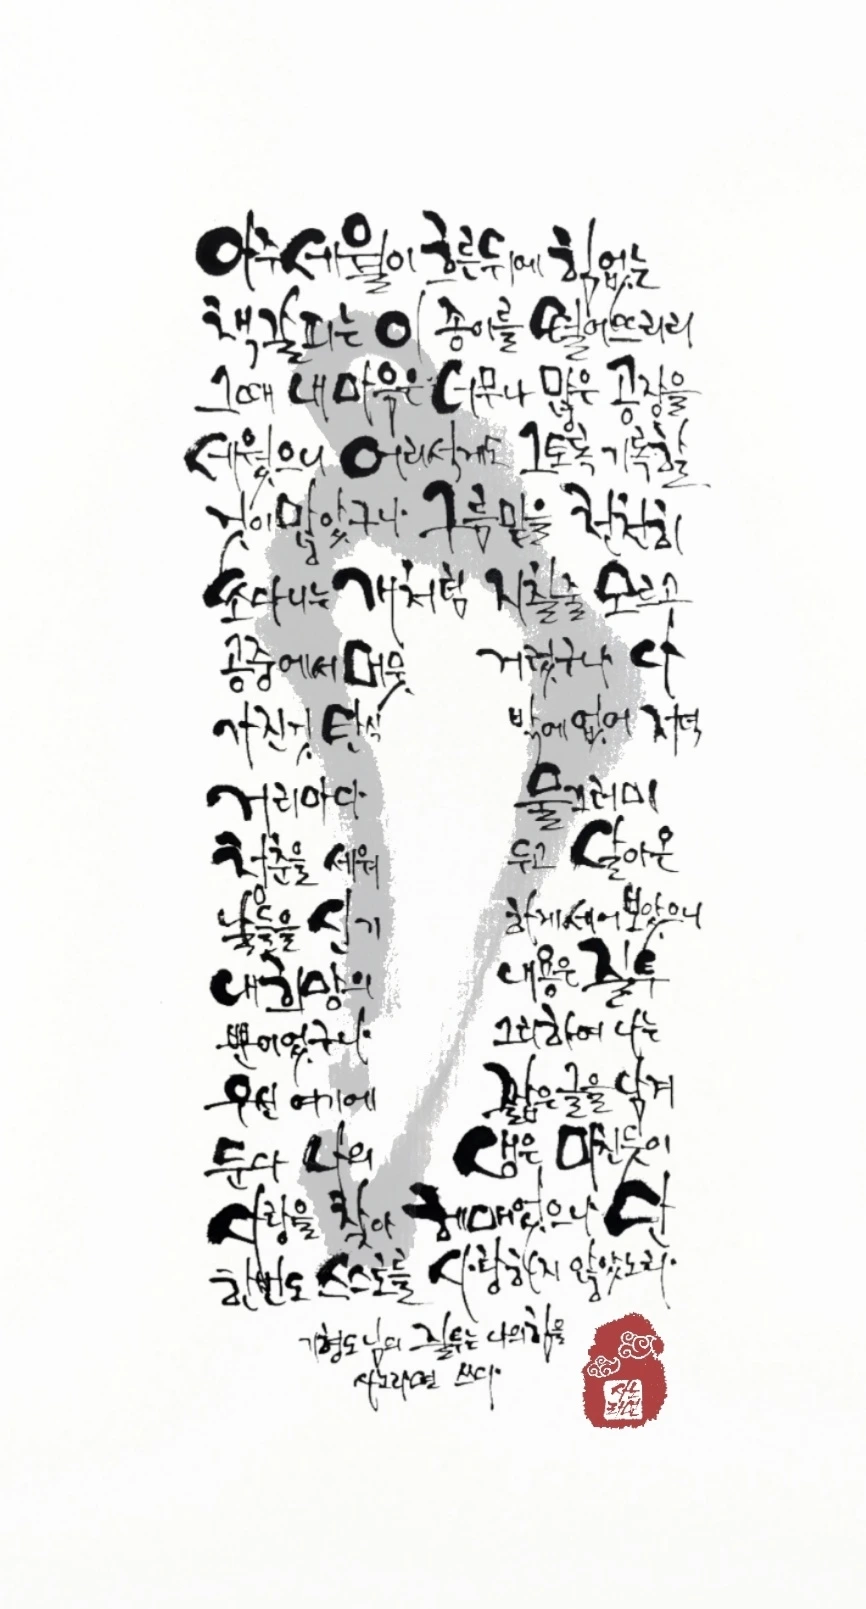 아주 세월이 흐른 뒤에 힘없는
책갈피는 이 종이를 떨어뜨리리
그때 내 마음은 너무나 많은 공장을
세웠으니 어리석게도 그토록 기록할
것이 많았구나 구름 밑을 천천히
쏘다니는 개처럼 지칠줄 모르고
공중에서 머뭇거렸구나 나
가진것 탄식밖에 없어 저녁
거리마다 물끄러미
청춘을 세워두고 살아온
날들을 신기하게 세어보았으니
내 희망의 내용은 질투
뿐이었구나 그리하여 나는
우선 여기에 짧은 글을 남겨
둔다 나의 생은 미친듯이
사랑을 찾아 헤매었으나 단
한번도 스스로를 사랑하지 않았노라.
기형도님의 질투는 나의 힘을
사노라면 쓰다.
사노
라면